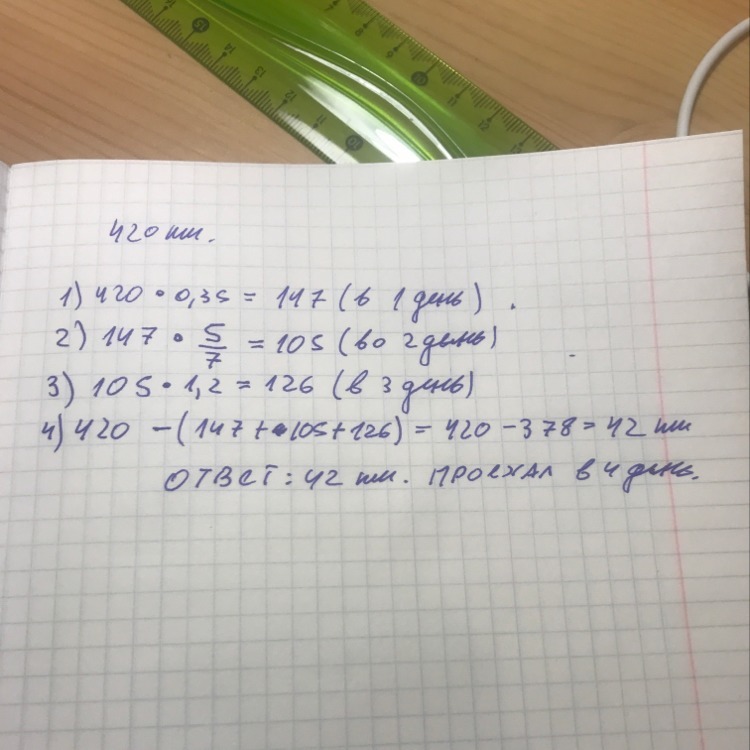 420 км.
1) 420 • 0,35 = 147 (в 1 день) .
2) 147 • 5/7 = 105 (во 2 день)
3) 105 • 1,2 = 126 (в 3 день)
4) 420 - (147 + 105 + 126) = 420 - 378 = 42 км
ОТВЕТ: 42 км. ПРОЕХАЛ в 4 день.